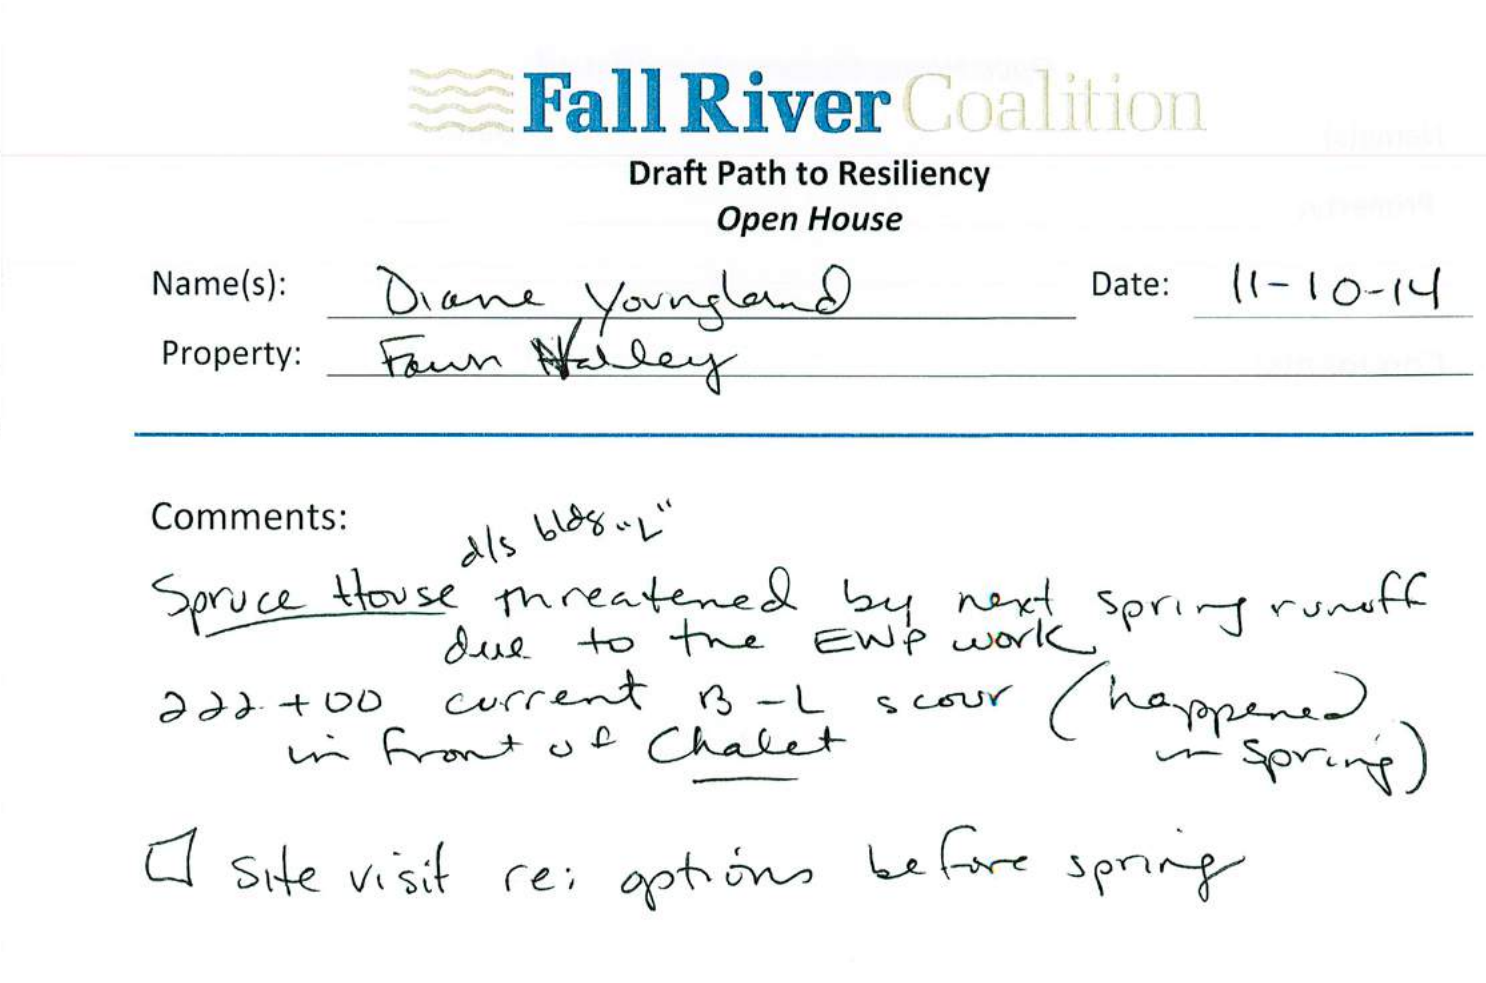 Fall River Coalition
Draft Path to Resiliency
Open House
Name(s): Diane Youngland Date: 11-10-14
Property: Fawn Valley
Comments:
d/s bldg "L"
Spruce House threatened by next spring runoff
due to the EWP work
222+00 current B-L scour (happened
in front of Chalet in spring)
☐ site visit re: options before spring